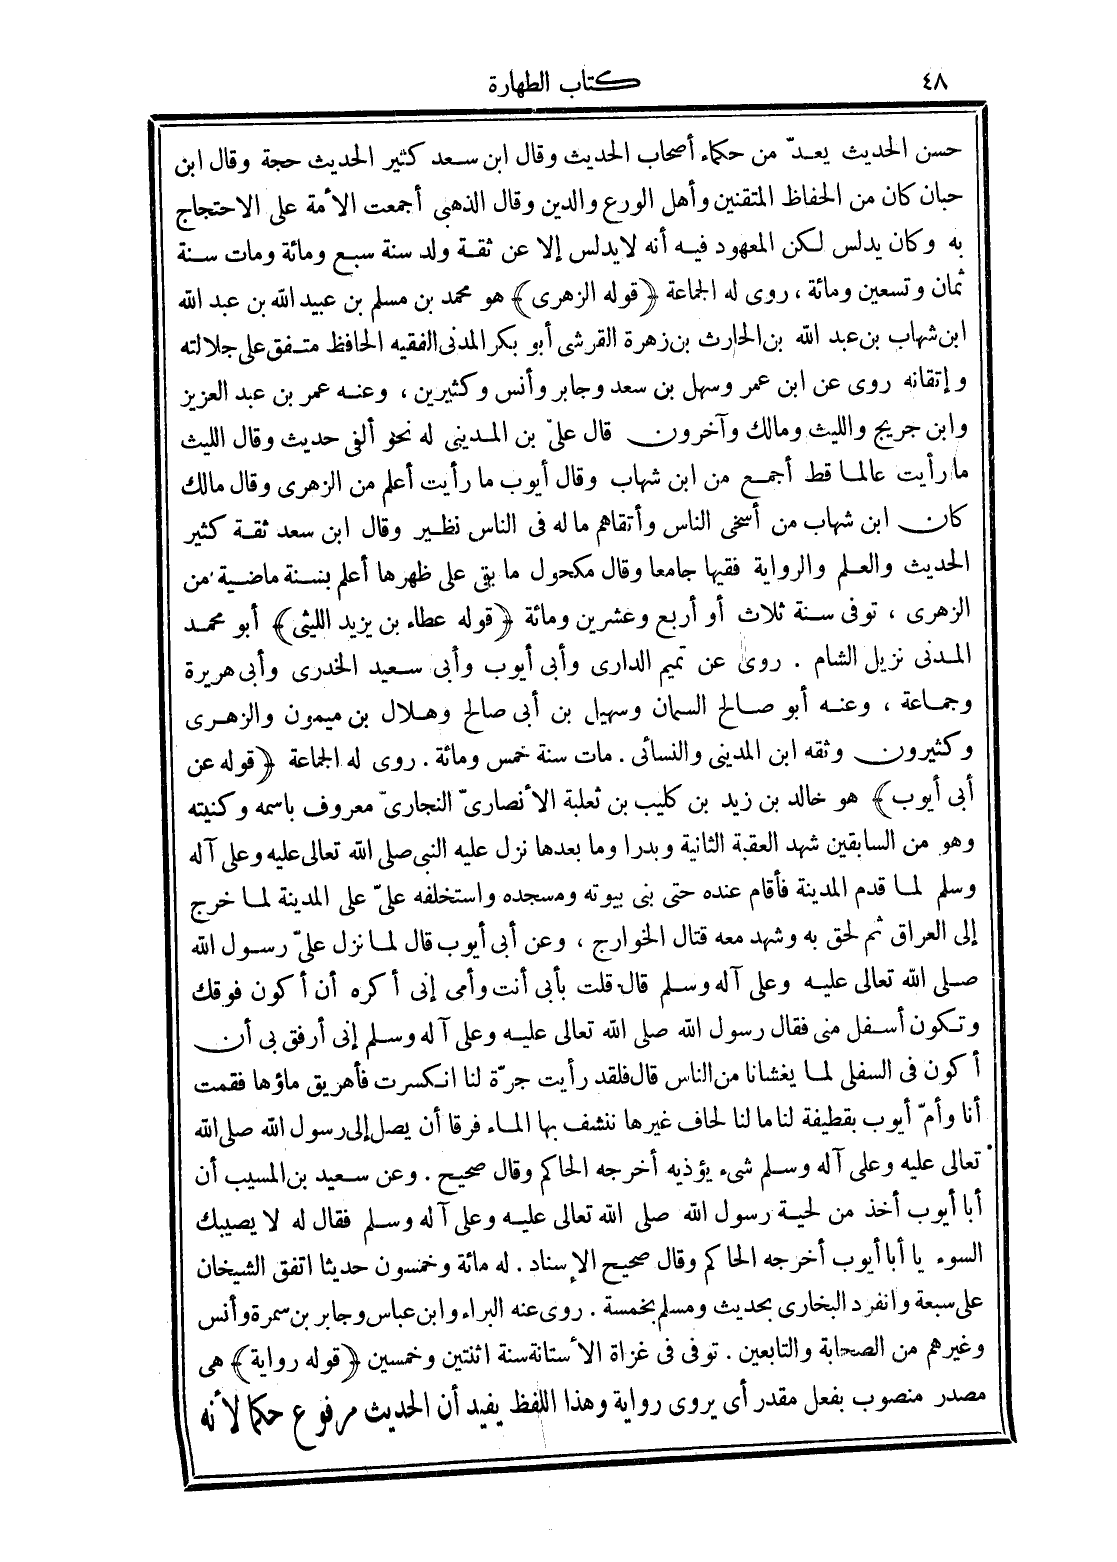 ٤٨
كتاب الطهارة
حسن الحديث يعدّ من حكماء أصحاب الحديث وقال ابن سعد كثير الحديث حجة وقال ابن
حبان كان من الحفاظ المتقنين وأهل الورع والدين وقال الذهبى أجمعت الأمة على الاحتجاج
به وكان يدلس لكن المعهود فيه أنه لايدلس إلا عن ثقة ولد سنة سبع ومائة ومات سنة
ثمان وتسعين ومائة ، روى له الجماعة ﴿قوله الزهرى﴾ هو محمد بن مسلم بن عبيد الله بن عبد الله
ابن شهاب بن عبد الله بن الحارث بن زهرة القرشى أبو بكر المدنى الفقيه الحافظ متفق على جلالته
وإتقانه روى عن ابن عمر وسهل بن سعد وجابر وأنس وكثيرين ، وعنه عمر بن عبد العزيز
وابن جريج والليث ومالك وآخرون قال علىّ بن المدينى له نحو ألفى حديث وقال الليث
ما رأيت عالما قط أجمع من ابن شهاب وقال أيوب ما رأيت أعلم من الزهرى وقال مالك
كان ابن شهاب من أسخى الناس وأتقاهم ما له فى الناس نظير وقال ابن سعد ثقة كثير
الحديث والعلم والرواية فقيها جامعا وقال مكحول ما بقى على ظهرها أعلم بسنة ماضية من
الزهرى ، توفى سنة ثلاث أو أربع وعشرين ومائة ﴿قوله عطاء بن يزيد الليثى﴾ أبو محمد
المدنى نزيل الشام . روى عن تميم الدارى وأبى أيوب وأبى سعيد الخدرى وأبى هريرة
وجماعة ، وعنه أبو صالح السمان وسهيل بن أبى صالح وهلال بن ميمون والزهرى
وكثيرون وثقه ابن المدينى والنسائى . مات سنة خمس ومائة . روى له الجماعة ﴿قوله عن
أبى أيوب﴾ هو خالد بن زيد بن كليب بن ثعلبة الأنصارىّ النجارىّ معروف باسمه وكنيته
وهو من السابقين شهد العقبة الثانية وبدرا وما بعدها نزل عليه النبى صلى الله تعالى عليه وعلى آله
وسلم لما قدم المدينة فأقام عنده حتى بنى بيوته ومسجده واستخلفه علىّ على المدينة لما خرج
إلى العراق ثم لحق به وشهد معه قتال الخوارج ، وعن أبى أيوب قال لما نزل علىّ رسول الله
صلى الله تعالى عليه وعلى آله وسلم قال قلت بأبى أنت وأمى إنى أكره أن أكون فوقك
وتكون أسفل منى فقال رسول الله صلى الله تعالى عليه وعلى آله وسلم إنى أرفق بى أن
أكون فى السفلى لما يغشانا من الناس قال فلقد رأيت جرّة لنا انكسرت فأهريق ماؤها فقمت
أنا وأمّ أيوب بقطيفة لنا ما لنا لحاف غيرها ننشف بها الماء فرقا أن يصل إلى رسول الله صلى الله
تعالى عليه وعلى آله وسلم شىء يؤذيه أخرجه الحاكم وقال صحيح . وعن سعيد بن المسيب أن
أبا أيوب أخذ من لحية رسول الله صلى الله تعالى عليه وعلى آله وسلم فقال له لا يصيبك
السوء يا أبا أيوب أخرجه الحاكم وقال صحيح الإسناد . له مائة وخمسون حديثا اتفق الشيخان
على سبعة وانفرد البخارى بحديث ومسلم بخمسة . روى عنه البراء وابن عباس وجابر بن سمرة وأنس
وغيرهم من الصحابة والتابعين . توفى فى غزاة الأستانة سنة اثنتين وخمسين ﴿قوله رواية﴾ هى
مصدر منصوب بفعل مقدر أى يروى رواية وهذا اللفظ يفيد أن الحديث مرفوع حكما لأنه